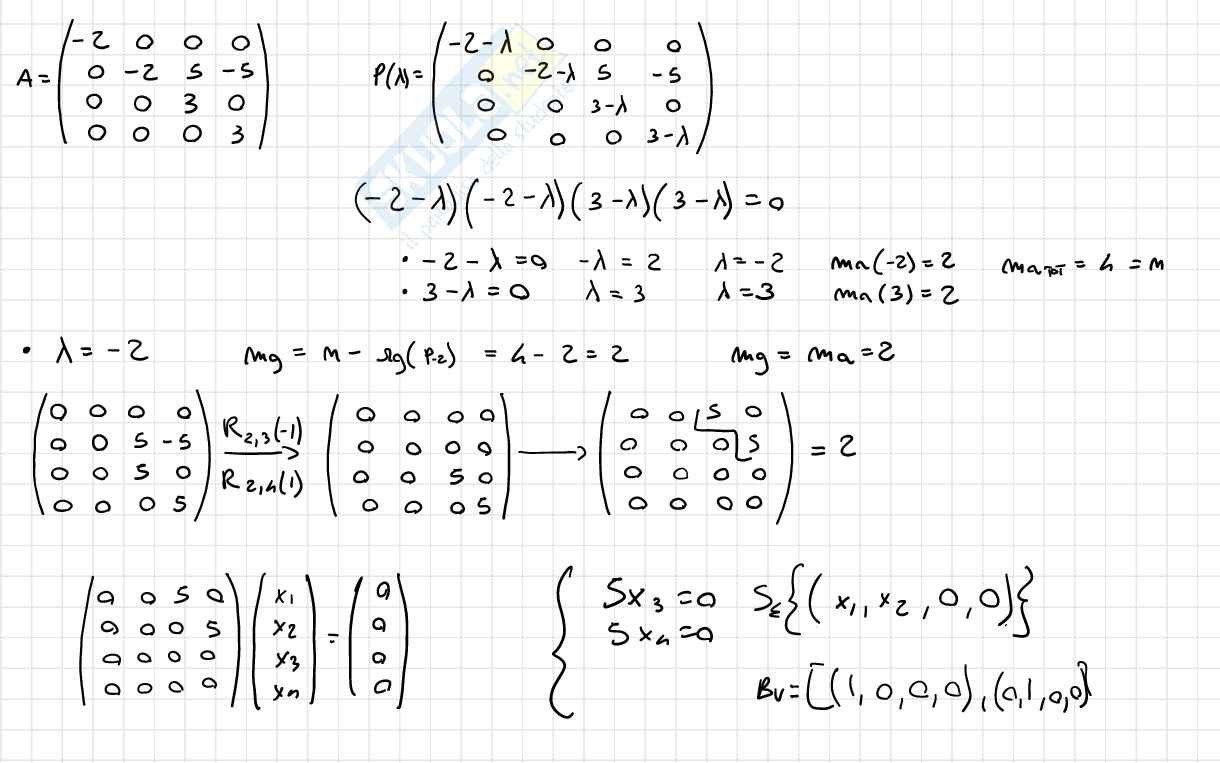 A = (-2 0 0 0 / 0 -2 5 -5 / 0 0 3 0 / 0 0 0 3)   P(λ) = (-2-λ 0 0 0 / 0 -2-λ 5 -5 / 0 0 3-λ 0 / 0 0 0 3-λ)
(-2-λ)(-2-λ)(3-λ)(3-λ) = 0
• -2-λ = 0   -λ = 2   λ = -2   ma(-2) = 2   ma TOT = 4 = n
• 3-λ = 0   λ = 3   λ = 3   ma(3) = 2
• λ = -2   mg = n - rg(P-2) = 4 - 2 = 2   mg = ma = 2
(0 0 0 0 / 0 0 5 -5 / 0 0 5 0 / 0 0 0 5) R2,3(-1) → R2,4(1) (0 0 0 0 / 0 0 0 0 / 0 0 5 0 / 0 0 0 5) → (0 0 5 0 / 0 0 0 5 / 0 0 0 0 / 0 0 0 0) = 2
(0 0 5 0 / 0 0 0 5 / 0 0 0 0 / 0 0 0 0) (x1 / x2 / x3 / x4) = (0 / 0 / 0 / 0)   { 5x3 = 0 / 5x4 = 0   SE{(x1, x2, 0, 0)}
Bv = [(1, 0, 0, 0), (0, 1, 0, 0)]
SKUOLA.net